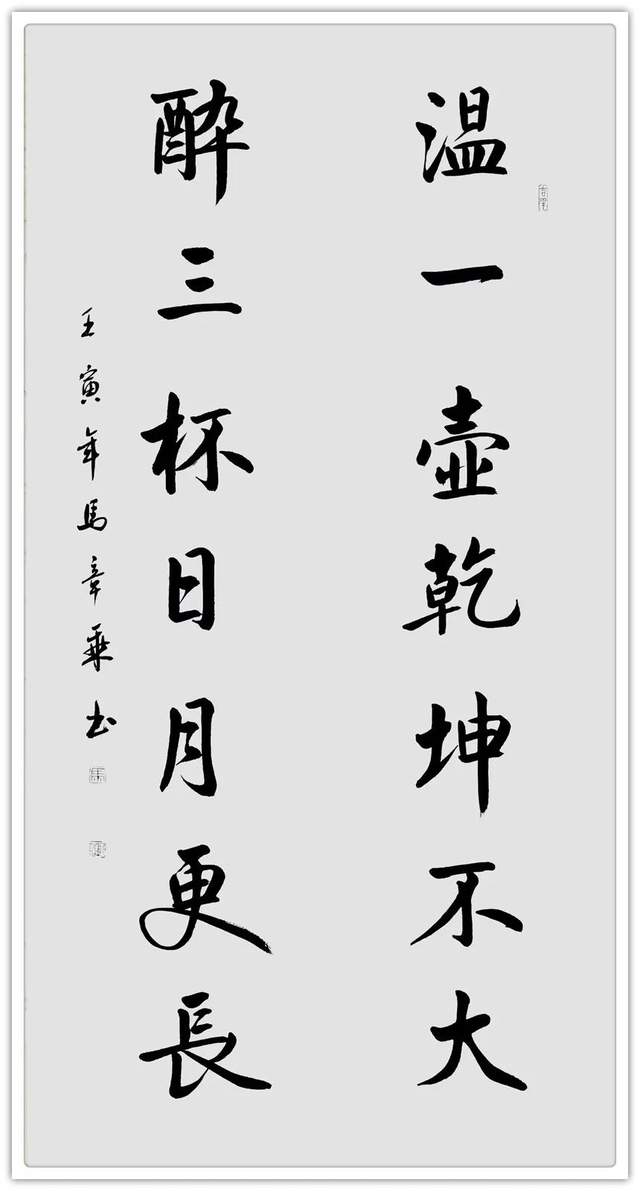 温一壶乾坤不大
醉三杯日月更長
壬寅年馬章乘书